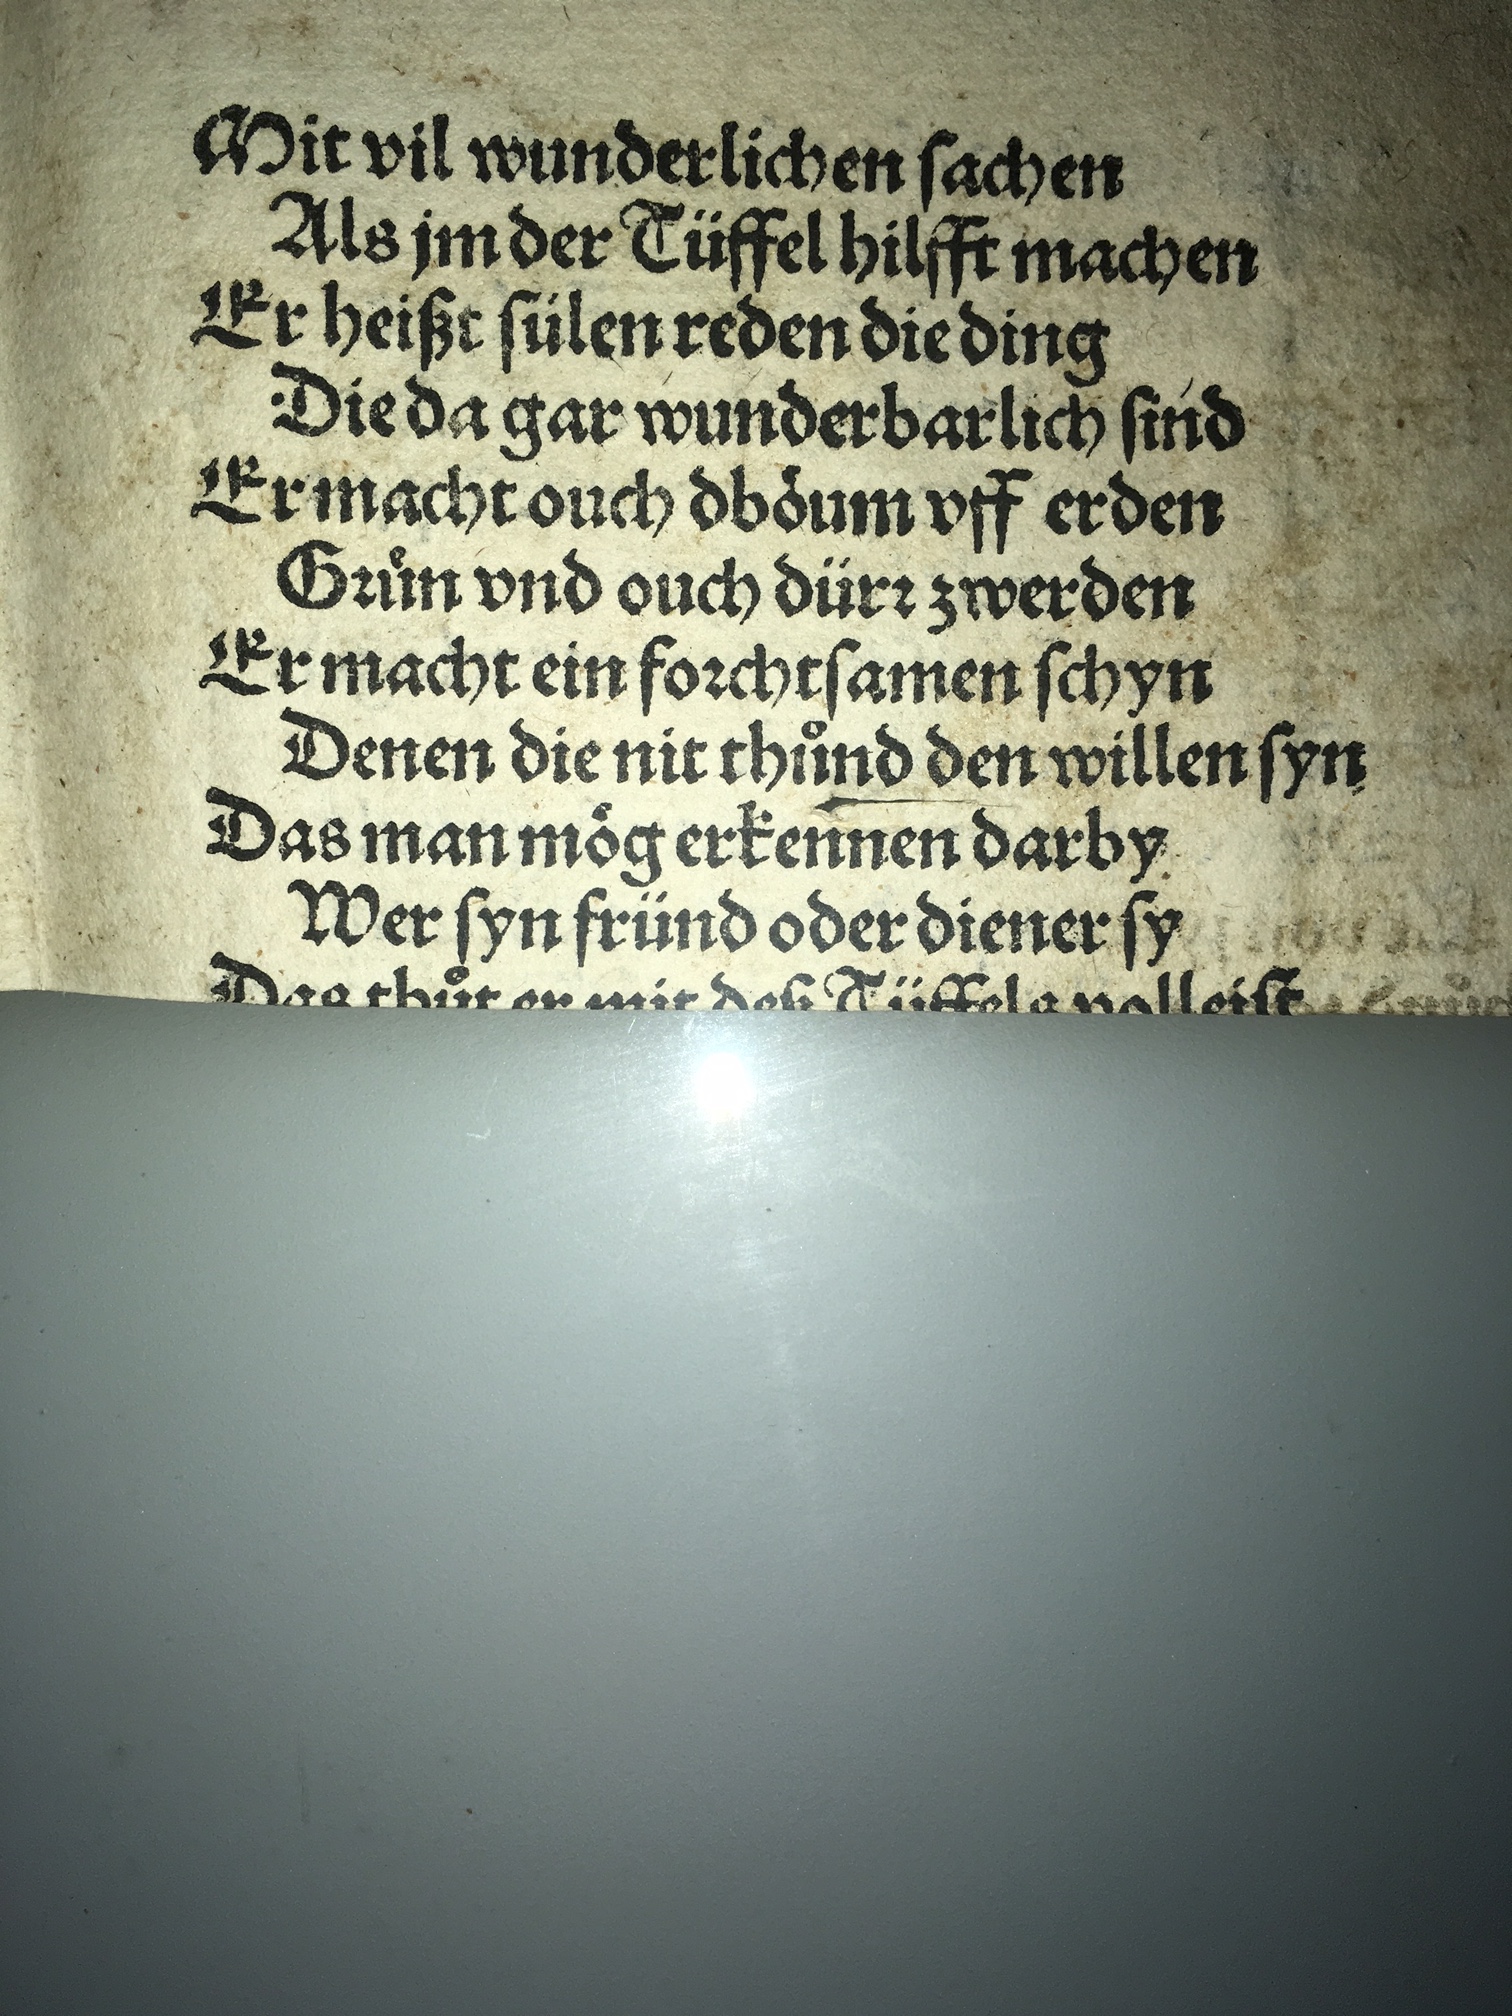 Mit vil wunderlichen sachen
Als jm der Tüffel hilfft machen
Er heißt sülen reden die ding
Die da gar wunderbarlich sind
Er macht ouch dböum vff erden
Gruͤn vnd ouch dürr zwerden
Er macht ein forchtsamen schyn
Denen die nit thuͦnd den willen syn
Das man mög erkennen darby
Wer syn fründ oder diener sy
Das thuͦt er mit deß Tüffels volleist